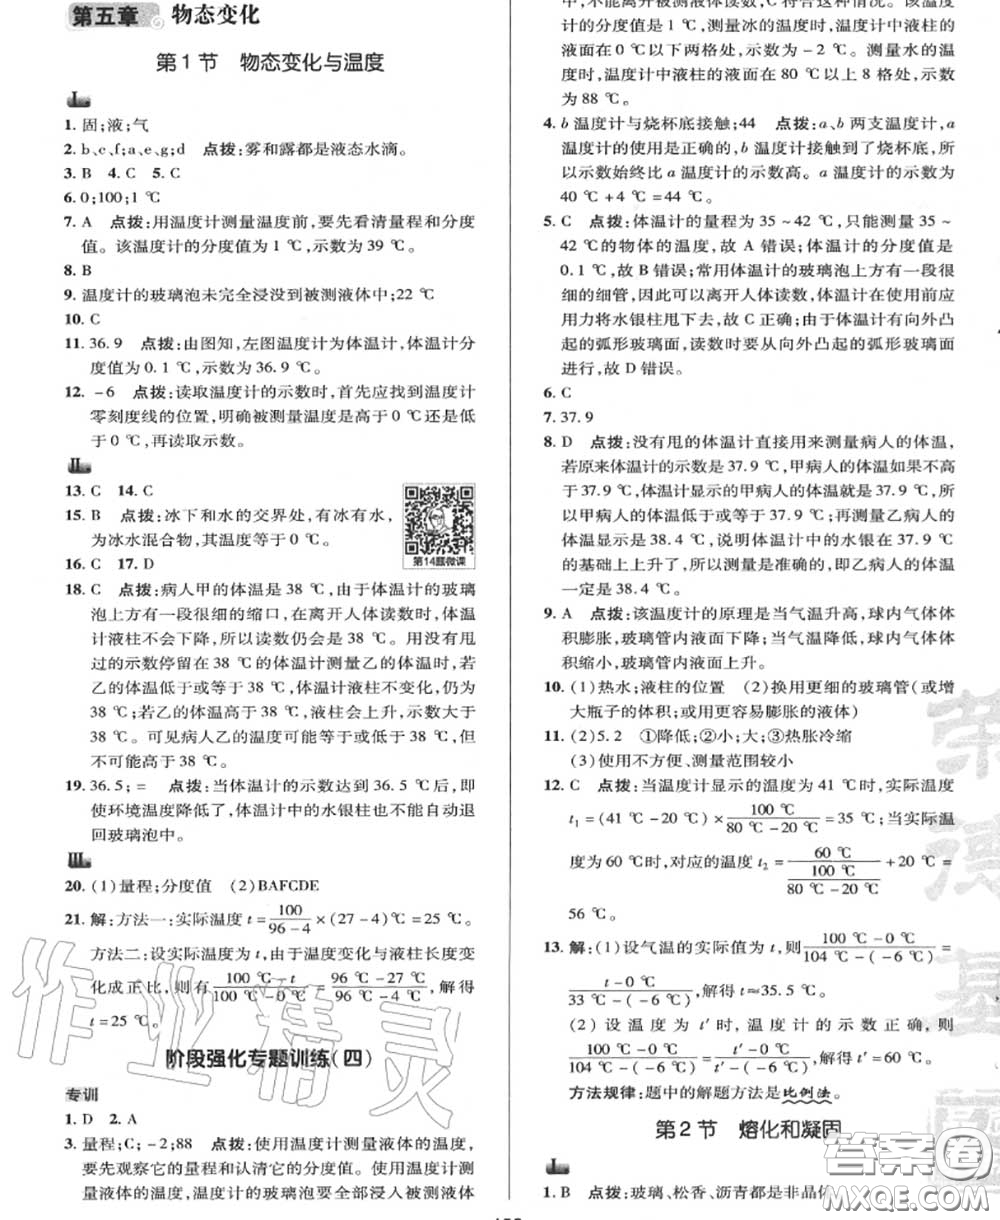 第五章 物态变化
第1节 物态变化与温度
Ⅰ
1. 固;液;气
2. b、c、f;a、e、g;d 点拨:雾和露都是液态水滴。
3. B 4. C 5. C
6. 0;100;1 ℃
7. A 点拨:用温度计测量温度前,要先看清量程和分度
值。该温度计的分度值为 1 ℃,示数为 39 ℃。
8. B
9. 温度计的玻璃泡未完全浸没到被测液体中;22 ℃
10. C
11. 36.9 点拨:由图知,左图温度计为体温计,体温计分
度值为 0.1 ℃,示数为 36.9 ℃。
12. -6 点拨:读取温度计的示数时,首先应找到温度计
零刻度线的位置,明确被测量温度是高于 0 ℃还是低
于 0 ℃,再读取示数。
Ⅱ
13. C 14. C
15. B 点拨:冰下和水的交界处,有冰有水,
为冰水混合物,其温度等于 0 ℃。
第14题微课
16. C 17. D
18. C 点拨:病人甲的体温是 38 ℃,由于体温计的玻璃
泡上方有一段很细的缩口,在离开人体读数时,体温
计液柱不会下降,所以读数仍会是 38 ℃。用没有甩
过的示数停留在 38 ℃的体温计测量乙的体温时,若
乙的体温低于或等于 38 ℃,体温计液柱不变化,仍为
38 ℃;若乙的体温高于 38 ℃,液柱会上升,示数大于
38 ℃。可见病人乙的温度可能等于或低于 38 ℃,但
不可能高于 38 ℃。
19. 36.5;= 点拨:当体温计的示数达到 36.5 ℃后,即
使环境温度降低了,体温计中的水银柱也不能自动退
回玻璃泡中。
Ⅲ
20. (1)量程;分度值 (2)BAFCDE
21. 解:方法一:实际温度 t=100/(96-4)×(27-4)℃=25 ℃。
方法二:设实际温度为 t,由于温度变化与液柱长度变
化成正比,则有(100 ℃-t)/(100 ℃-0 ℃)=(96 ℃-27 ℃)/(96 ℃-4 ℃),解得
t=25 ℃。
阶段强化专题训练(四)
专训
1. D 2. A
3. 量程;C;-2;88 点拨:使用温度计测量液体的温度,
要先观察它的量程和认清它的分度值。使用温度计测
量液体的温度,温度计的玻璃泡要全部浸入被测液体
中,不能离开被测液体读数,C 符合这种情况。该温度
计的分度值是 1 ℃,测量冰的温度时,温度计中液柱的
液面在 0 ℃以下两格处,示数为 -2 ℃。测量水的温
度时,温度计中液柱的液面在 80 ℃以上 8 格处,示数
为 88 ℃。
4. b 温度计与烧杯底接触;44 点拨:a、b 两支温度计,a
温度计的使用是正确的,b 温度计接触到了烧杯底,所
以示数始终比 a 温度计的示数高。a 温度计的示数为
40 ℃+4 ℃=44 ℃。
5. C 点拨:体温计的量程为 35~42 ℃,只能测量 35~
42 ℃的物体的温度,故 A 错误;体温计的分度值是
0.1 ℃,故 B 错误;常用体温计的玻璃泡上方有一段很
细的细管,因此可以离开人体读数,体温计在使用前应
用力将水银柱甩下去,故 C 正确;由于体温计有向外凸
起的弧形玻璃面,读数时要从向外凸起的弧形玻璃面
进行,故 D 错误。
6. C
7. 37.9
8. D 点拨:没有甩的体温计直接用来测量病人的体温,
若原来体温计的示数是 37.9 ℃,甲病人的体温如果不高
于 37.9 ℃,体温计显示的甲病人的体温就是 37.9 ℃,所
以甲病人的体温低于或等于 37.9 ℃;再测量乙病人的
体温显示是 38.4 ℃,说明体温计中的水银在 37.9 ℃
的基础上上升了,所以测量是准确的,即乙病人的体温
一定是 38.4 ℃。
9. A 点拨:该温度计的原理是当气温升高,球内气体体
积膨胀,玻璃管内液面下降;当气温降低,球内气体体
积缩小,玻璃管内液面上升。
10. (1)热水;液柱的位置 (2)换用更细的玻璃管(或增
大瓶子的体积;或用更容易膨胀的液体)
11. (2)5.2 ①降低;②小;大;③热胀冷缩
(3)使用不方便、测量范围较小
12. C 点拨:当温度计显示的温度为 41 ℃时,实际温度
t₁=(41 ℃-20 ℃)×100 ℃/(80 ℃-20 ℃)=35 ℃;当实际温
度为 60 ℃时,对应的温度 t₂=60 ℃/(100 ℃/(80 ℃-20 ℃))+20 ℃=
56 ℃。
13. 解:(1)设气温的实际值为 t,则(100 ℃-0 ℃)/(104 ℃-(-6 ℃))=
(t-0 ℃)/(33 ℃-(-6 ℃)),解得 t≈35.5 ℃。
(2)设温度为 t′时,温度计的示数正确,则有
(100 ℃-0 ℃)/(104 ℃-(-6 ℃))=(t′-0 ℃)/(t′-(-6 ℃)),解得 t′=60 ℃。
方法规律:题中的解题方法是比例法。
第2节 熔化和凝固
Ⅰ
1. B 点拨:玻璃、松香、沥青都是非晶体
作业精灵
荣德基
答案圈
MXQE.COM